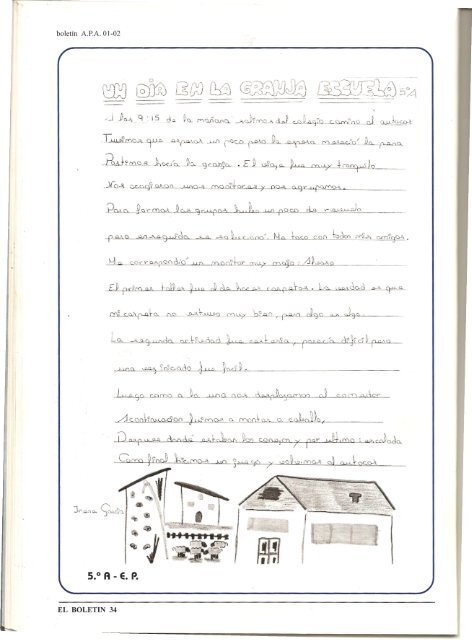 boletín A.P.A. 01-02
UN DÍA EN LA GRANJA ESCUELA 5ºA
A las 9:15 de la mañana salimos del colegio camino al autocar
Tuvimos que esperar un poco pero la espera mereció la pena
Partimos hacia la granja. El viaje fue muy tranquilo
Nos acogieron unos monitores y nos agrupamos.
Para formar los grupos hubo un poco de revuelo
pero enseguida se solucionó. Me toco con todos mis amigos.
Me correspondió un monitor muy majo: Álvaro
El primer taller fue el de hacer carpetas. La verdad es que
mi carpeta no estuvo muy bien, pero algo es algo.
La segunda actividad fue cestería, parecía difícil pero
una vez iniciado fue fácil.
Luego como a la una nos desplazamos al comedor
A continuación fuimos a montar a caballo,
Despues donde estaban los conejos y por ultimo: escalada
Como final hicimos un juego y volvimos al autocar
Irene García
5.º A - E. P.
EL BOLETIN 34